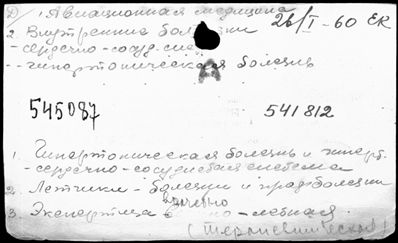 D) 1. Авиационная медицина 26/I-60 ER
2. Внутренние болезни
- сердечно-сосуд. сист.
-- гипертоническая болезнь
A
545087 541812
1. Гипертоническая болезнь и гиперт.
- сердечно-сосудистая система
2. Летчики - болезни и профболезни
3. Экспертиза врачебно-летная
(терапевтическая)